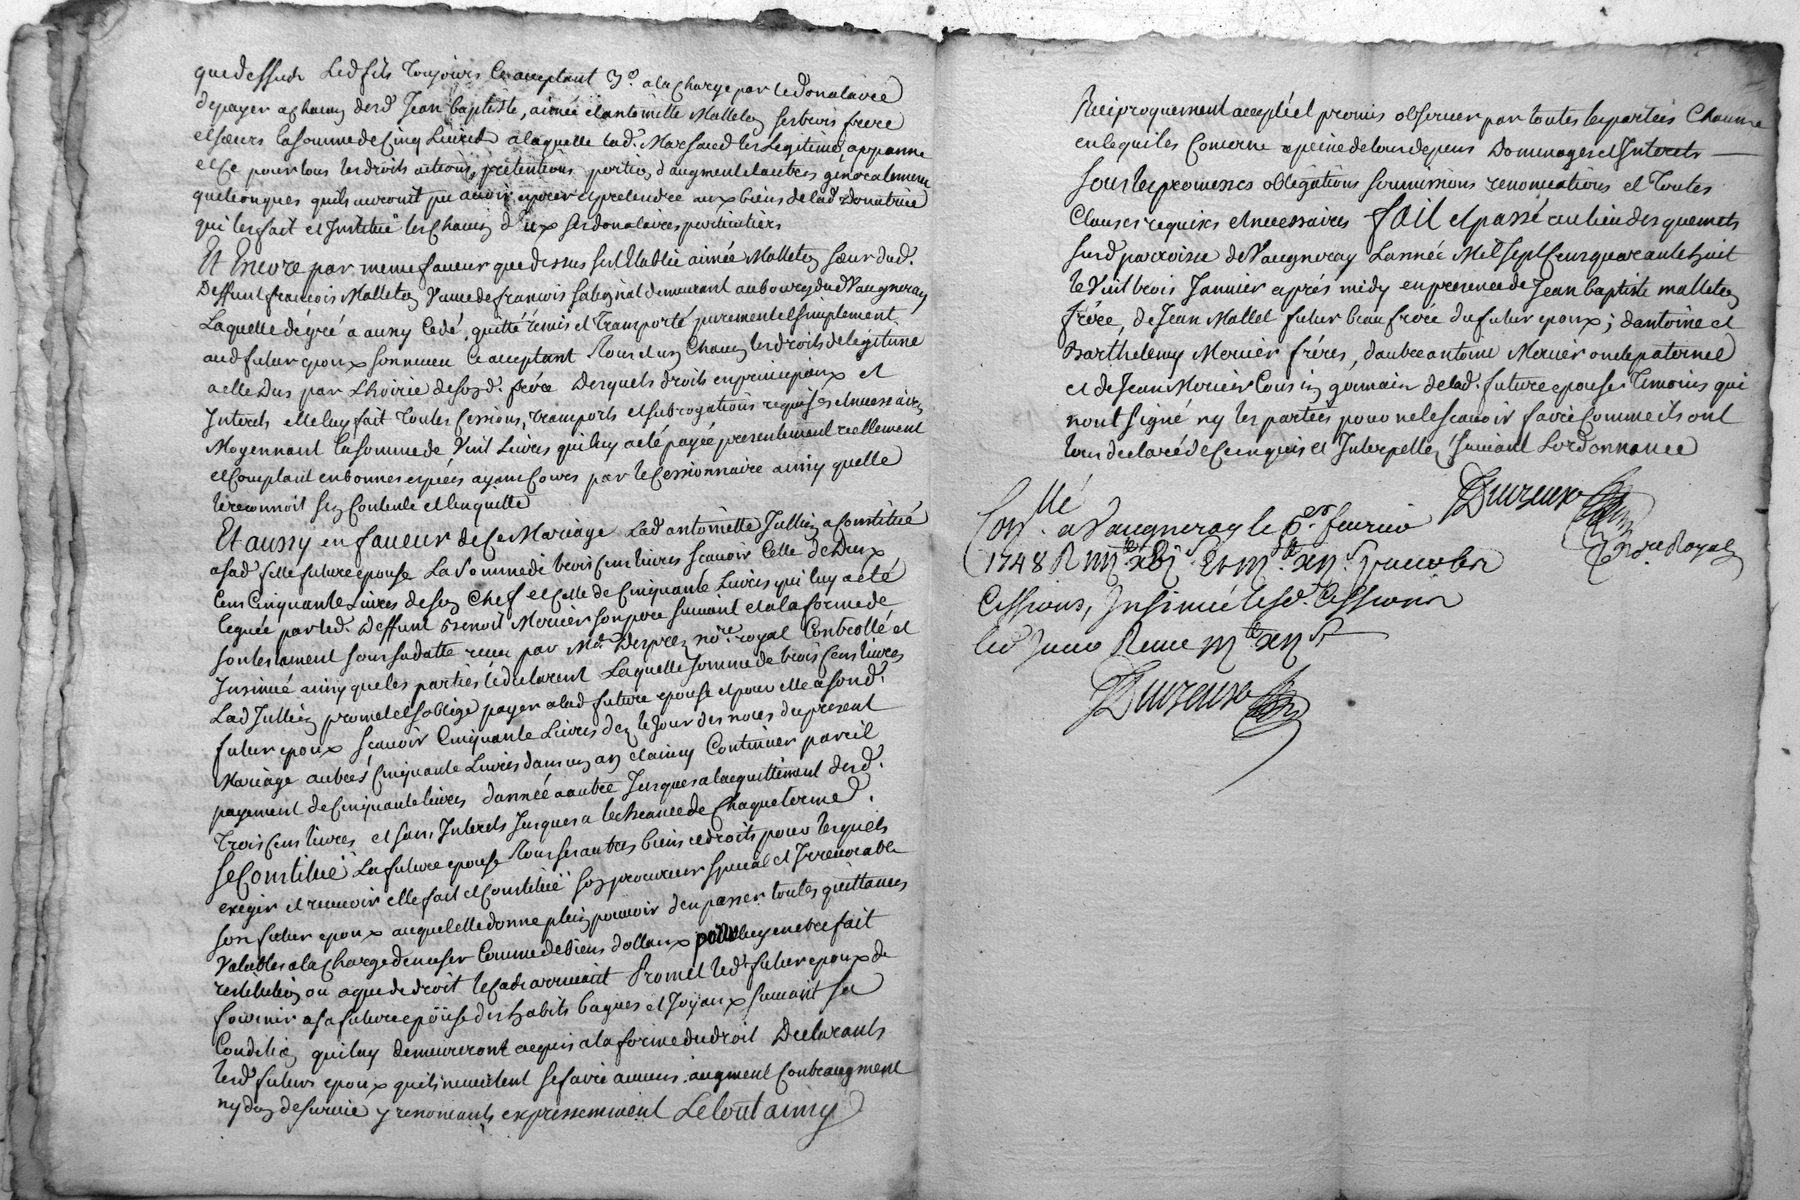 que dessus Led fils Toujours Ce acceptant 3°. a la Charge par le donataire
de payer a chacun desd Jean baptiste, aimée et antoinette Malleton ses trois frere
et sœurs la somme de Cinq Livres a laquelle lad. Marsaud les Legitime, appanne
et Ce pour tous les droits actions, pretentions portion d'augment et autres generalement
quelconques quils auront pu avoir exiger et pretendre aux biens de lad Donatrice
qui les fait et Institue les Chacun d'Eux ses donataires particuliers
Et Encore par meme faveur que dessus sest Etablie aimée Malleton sœur dud.
Deffunt francois Malleton Vauve de francois demeurant au bourg dud Vaugneray
Laquelle de gré a aussy Cedé, quitté remis et Transporté purement et simplement
aud futur epoux son neveu Ce acceptant Tous et un Chacun les droits de legitime
a elle Dus par L'hoirie de sond. frere Desquels droits en principaux et
Interets elle luy fait Toutes Cessions, Transports et subrogations requises et necessaires
Moyennant la somme de Vint Livres qui luy a eté payée presentement reellement
et Comptant en bonnes especes ayant Cours par le Cessionnaire ainsy quelle
le reconnoit sen Contente et len quitte
Et aussy en faveur de Ce Mariage Lad antoinette Jullien a Constitué
a sad fille future epouse La Somme de trois Cent livres scavoir Celle de Deux
Cent Cinquante Livres de son Chef et Celle de Cinquante Livres qui luy a eté
leguée par led. Deffunt Benoit Mercier son pere suivant et a la forme de
son testament sous sa datte recu par Me. Desprez nore. royal Controllé et
Insinué ainsy que les parties le declarent Laquelle somme de trois Cent livres
Lad Jullien promet et soblige payer a lad future epouse et pour elle a sond.
futur epoux scavoir Cinquante Livres dez le Jour des noces du present
Mariage autres Cinquante Livres dans un an et ainsy Continuer pareil
payement de Cinquante livres d'année a autre Jusques a lacquittement desd.
Trois Cent livres et sans Interets Jusques a lecheance de Chaque terme.
Se Constitue La future epouse Tous ses autres biens et droits pour lesquels
exiger et recevoir elle fait et Constitue son procureur special et Irrevocable
son futur epoux auquel elle donne plein pouvoir den passer toutes quittances
Valables a la Charge den user Comme de biens dottaux pour luy en etre fait
restitution ou a que de droit le Cas arrivant Promet led futur epoux de
fournir a sa future epouse des habits bagues et Joyaux suivant sa
Condition qui luy demeureront acquis a la forme du droit Declarants
lesd futurs epoux quils ne veulent se faire aucuns augment Contraugment
ny don de survie y renoncants expressement Le tout ainsy
Reciproquement accepté et promis observer par toutes les parties Chacune
en le qui les Concerne a peine de tous depens Dommages et Interets
sous les promesses obligations soumissions renonciations et Toutes
Clauses requises et necessaires fait et passé au lieu des quemets
susd parroisse de Vaugneray L'année Mil sept Cens quarante huit
le Vint trois Janvier après midy en presence de Jean baptiste malleton
frére, de Jean Mallet futur beau frére du futur epoux; d'antoine et
Barthelemy Mercier fréres, d'autre antoine Mercier oncle paternel
et de Jean Mercier Cousin germain de lad. future epouse Temoins qui
nont signé ny les parties pour ne le scavoir faire Comme ils ont
tous declaré de Ce enquis et Interpellez suivant Lordonnance
Duvreux
nore Royal
Conlle. a Vaugneray le fevrier
1748 R
Cessions, Insinué lesd. Cessions
led Jour Recu
Duvreux